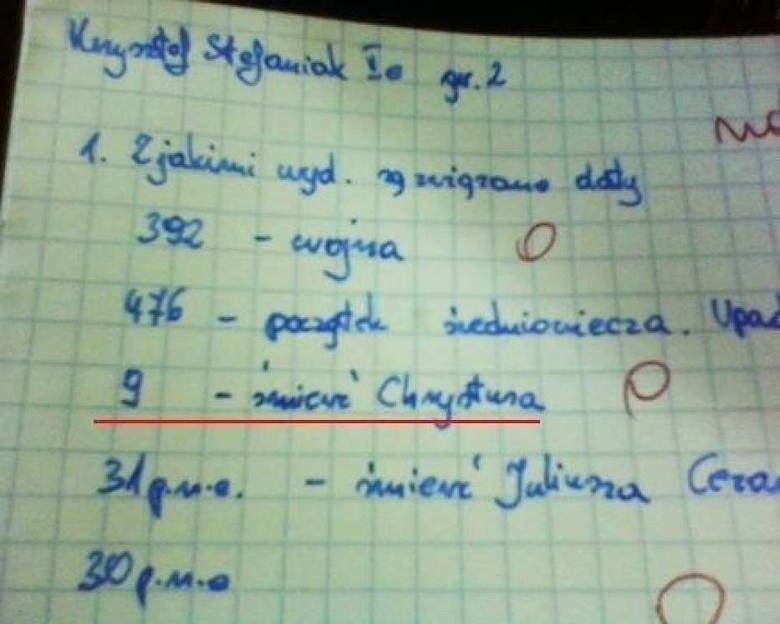 Krzysztof Stefaniak Ie gr. 2
1. Z jakimi wyd. są związane daty
392 - wojna 0
476 - początek średniowiecza. Upad
9 - śmierć Chrystusa 0
31 p.n.e. - śmierć Juliusza Ceza
30 p.n.e 0